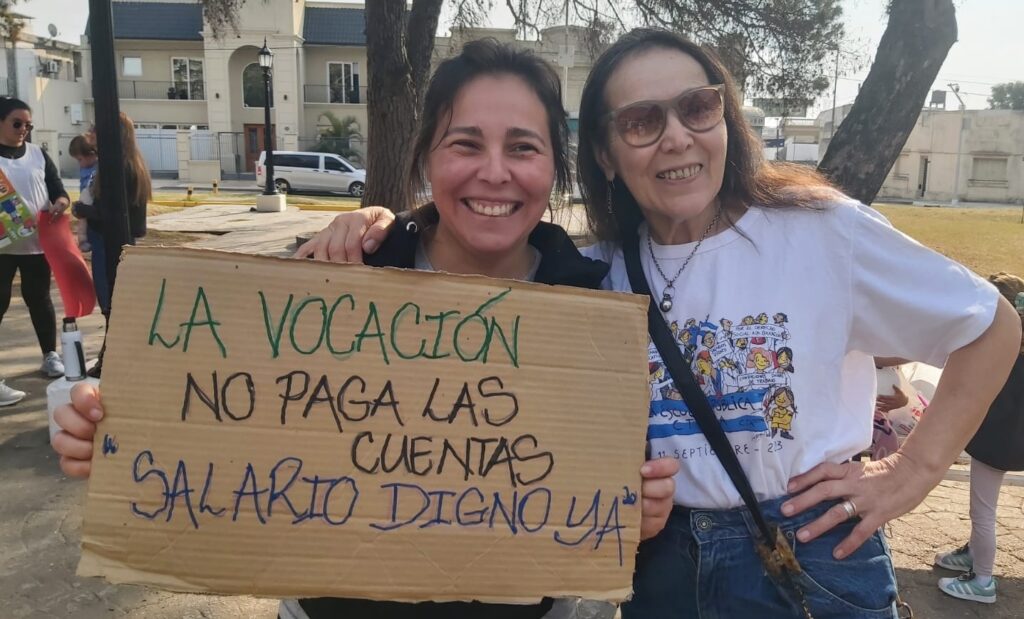 LA VOCACIÓN
NO PAGA LAS
CUENTAS
"SALARIO DIGNO YA"
PÚBLICA
11 SEPTIEMBRE -